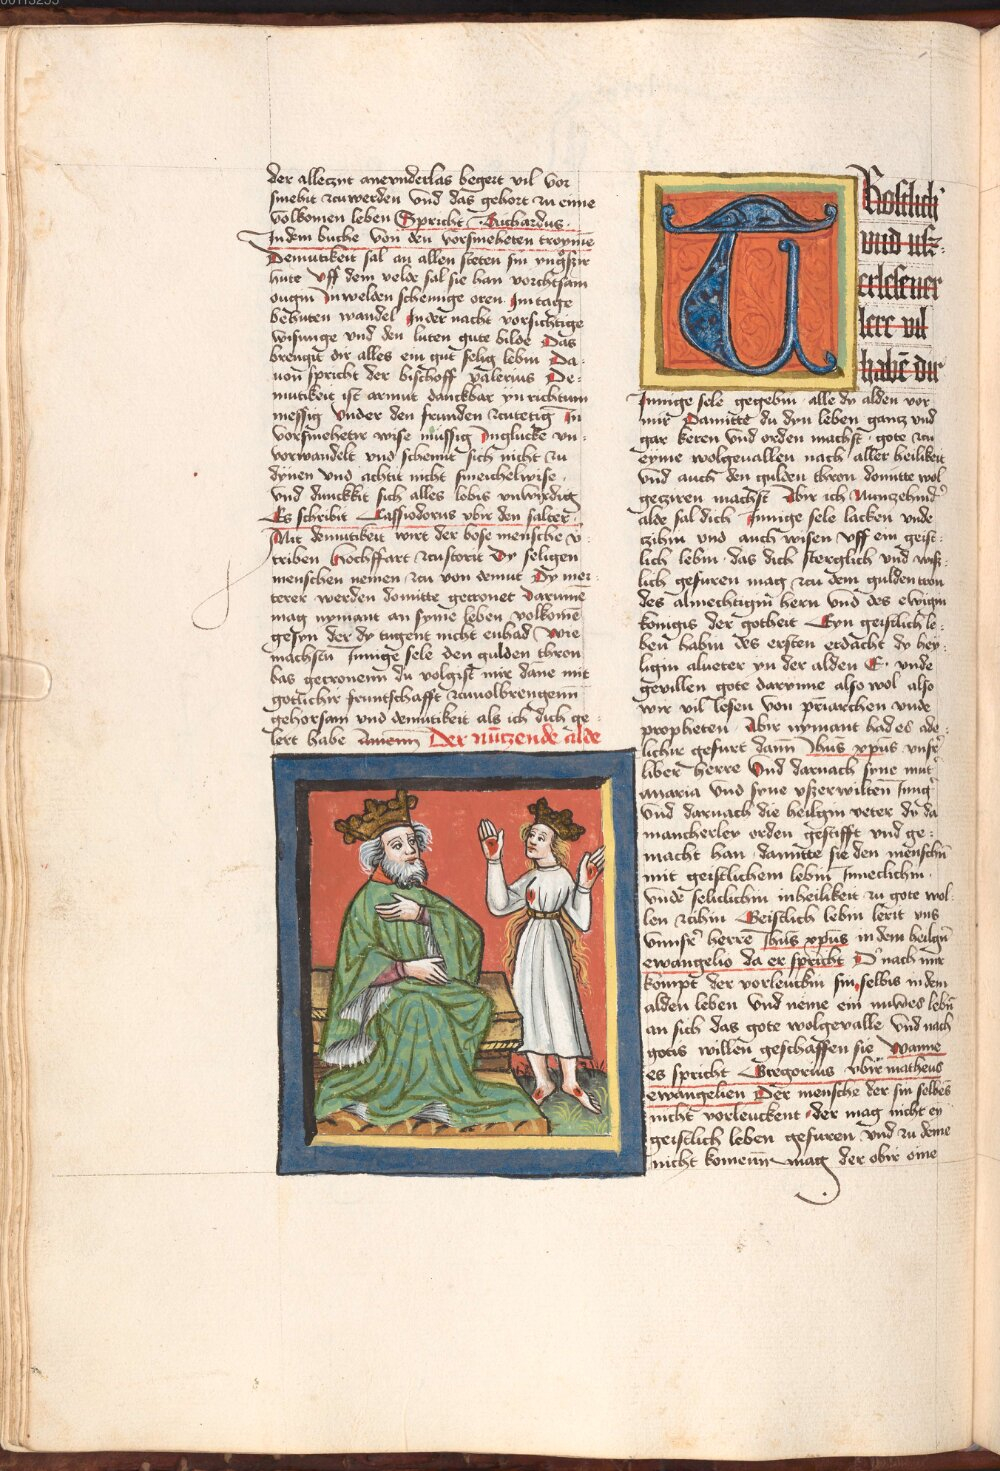 der alleczyt anevnderlas begert vil vor
smehit zcuwerden vnd das gehort zu eime
volkomen leben Spricht Richardus
In dem buche von den vorsmeheten troyme
Demutikeit sal an allen steten sin
hute Vff dem velde sal sie han vorchtsam
ougin In welden schemige oren Im tage
behuten wandel In der nacht vorsichtige
wisunge vnd den luten gute bilde Das
brengit dir alles ein gut selig lebin Da
uon spricht der bischoff Valerius De
mutikeit ist armut danckbar yn richtum
messig vnder den frunden zcutetig In
vorsmehetir wise mussig Inglucke vn
vorwandelt vnd schemit sich nicht zu
dynen vnd achtit nicht smeichelwise
vnd dunckit sich alles lobis vnwirdig
Es schribit Cassiodorus vbir den salter
Mit demutikeit wirt der bose mensche v
triben hochffart zcustorit Dy seligen
menschen nemen zcu von demut Dy mer
terer werden domitte gecronet Darumme
mag nymant an syme leben volkome
gesyn der dy tugent nicht enhad Wie
machstu Innige sele den gulden thron
bas gecronenn du volgist mir dane mit
gotlichir fruntschafft zcuuolbrengenn
gehorsam vnd demutikeit als ich dich ge
lert habe Amenn Der nuczende alde
Kostlich
vnd usz
erlesener
lere vil
habe dir
Innige sele gegebin alle dy alden vor
mir Damitte du dyn leben gancz vnd
gar keren vnd orden machst gote zcu
eyme wolgeuallen nach aller heilikeit
vnd auch den gulden thron domitte wol
gecziren machst Abir ich Nunczehind
alde sal dich Innige sele lacken vnde
czihin vnd auch wisen vff ein geist
lich lebin das dich sterglich vnd wisz
lich gefuren mag zcu dem gulden tron
des almechtigin hern vnd des ewigin
konigis der gotheit Eyn geistlich le
ben habin des ersten erdacht dy hey
ligin altueter yn der alden E vnde
geuillen gote darynne also wol also
wir vil lesen von priarchen vnde
propheten Abir nymant had es ede
lichir gefurt dann Ihus xpus vnsr
liber herre Vnd darnach syne mut
maria vnd syne vszerwilten Jung
vnd darnach die heiligin veter dy da
mancherley orden gestifft vnd ge
macht han damitte sie den menschin
mit geistlichem lebin innelichin
vnde seliclichin inheilikeit zu gote wol
len czihin Geistlich lebin lerit vns
vnnsr herre Ihus xpus in dem heilgn
ewangelio da er spricht D nach mir
kompt der vorleuckin sin selbis in dem
alden leben vnd neme ein nuwes lebin
an sich das gote wolgevalle vnd nach
gotis willen geschaffen sie Wanne
es spricht Gregorius vbir matheus
ewangelien Der mensche der sin selbes
nicht vorleuckent der mag nicht ey
geistlich leben gefuren vnd zu deme
nicht komenn mag der obir eme